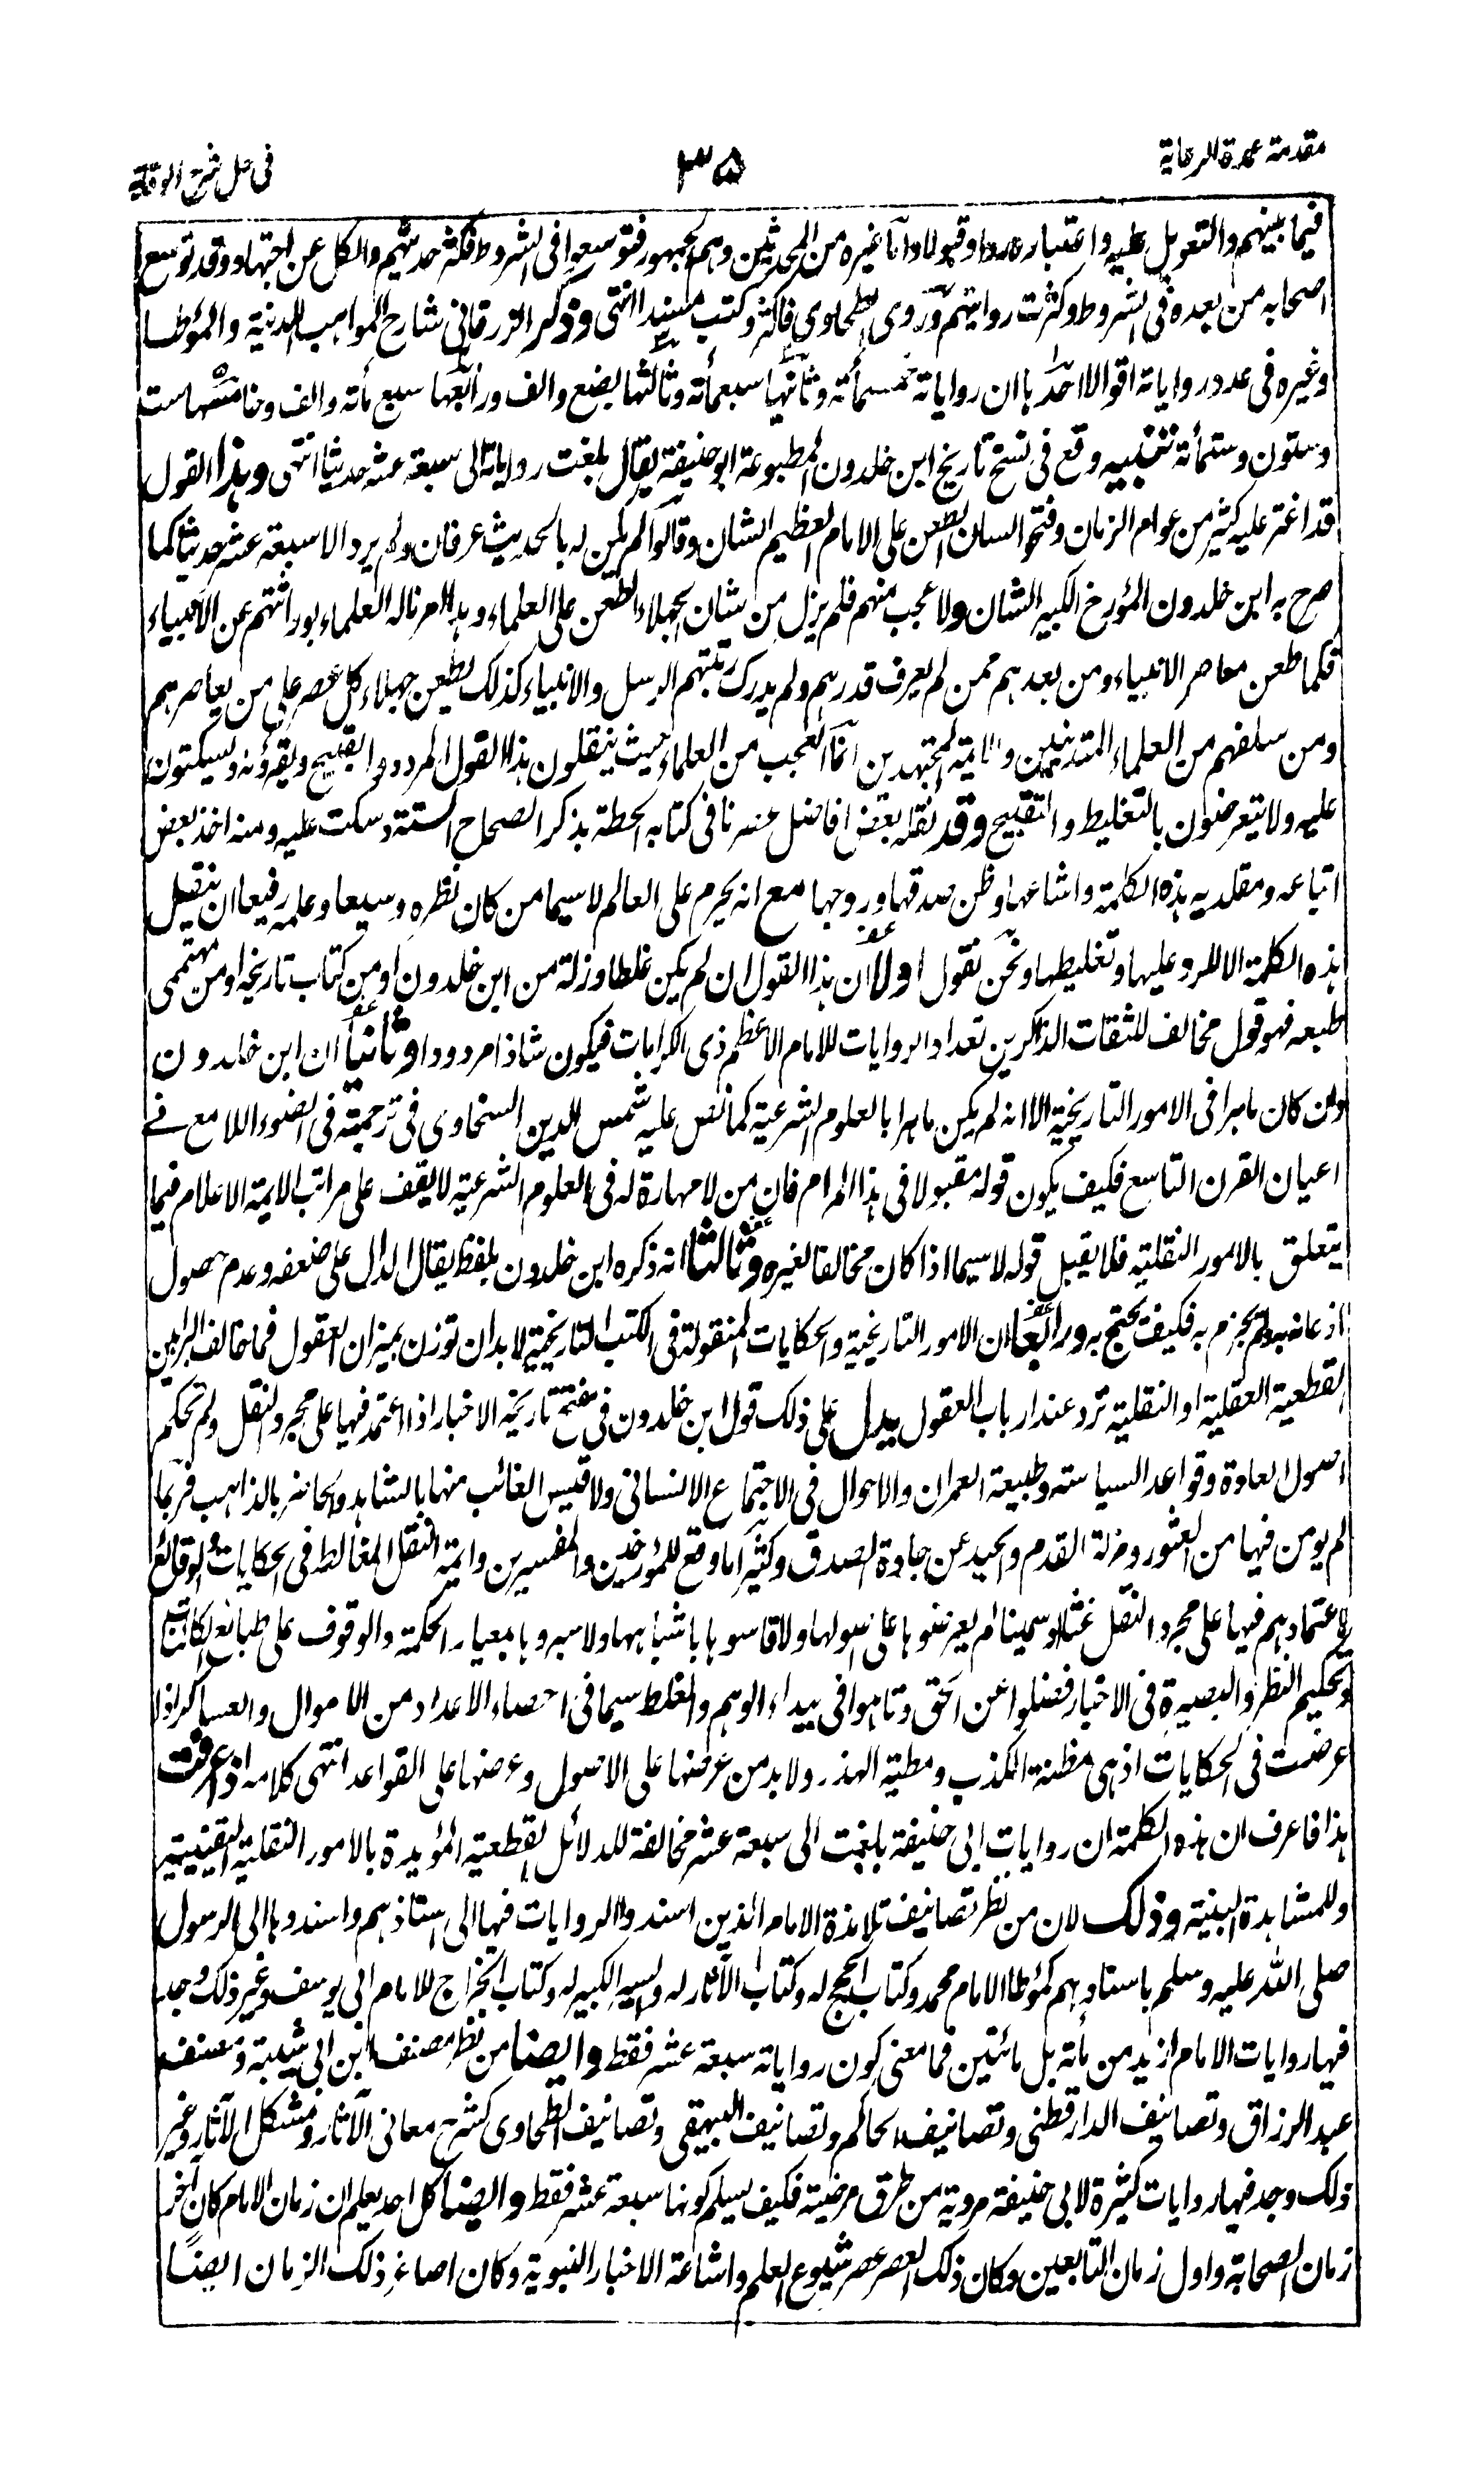 مقدمة عمدة الرعاية
٣٥
فى حل شرح الوقاية
فيما بينهم والتعويل عليه واعتباره ردا وقبولا واما غيره من المحدثين وهم الجمهور فتوسعوا فى الشروط فكثر حديثهم والكل عن اجتهاد وقد توسع
اصحابه من بعده فى الشروط وكثرت روايتهم وروى الطحاوى فاكثر وكتب مسندا انتهى وذكر الزرقانى شارح المواهب اللدنية والمؤطا
وغيره فى عدد رواياته اقوالا احدها ان رواياته خمسمأته وثانيها سبعمأته وثالثها بضع والف ورابعها سبع مأته والف وخامسها ست
وستون وستمأته تنبيه وقع فى نسخ تاريخ ابن خلدون المطبوعة ابو حنيفة يقال بلغت رواياته الى سبعة عشر حديثا انتهى وهذا القول
قد اغتر عليه كثير من عوام الزمان وفتحوا لسان الطعن على الامام العظيم الشان وقالوا لم يكن له بالحديث عرفان ولم يرو الا سبعة عشر حديثا كما
صرح به ابن خلدون المؤرخ الكبير الشان ولا عجب منهم فلم يزل من شان الجهلاء الطعن على العلماء وهذا امر ناله العلماء بوراثتهم عن الانبياء
فكما طعن معاصر الانبياء ومن بعدهم ممن لم يعرف قدرهم ولم يدرك رتبتهم الرسل والانبياء كذلك يطعن جهلاء كل عصر على من يعاصرهم
ومن سلفهم من العلماء المتدينين والايمة المجتهدين انما العجب من العلماء حيث ينقلون هذا القول المردود القبيح ويقرؤنه ويسكتون
عليه ولا يتعرضون بالتغليط والتقبيح وقد نقله بعض افاضل عصرنا فى كتابه الحطة بذكر الصحاح الستة وسكت عليه ومنه اخذ بعض
اتباعه ومقلديه هذه الكلمة واشاعها وظن صدقها وروجها مع انه يحرم على العالم لاسيما من كان نظره وسيعا وعلمه رفيعا ان ينقل
هذه الكلمة الا للرد عليها وتغليطها ونحن نقول اولا ان هذا القول ان لم يكن غلطا وزلة من ابن خلدون او من كتاب تاريخه او من مهتممى
طبعه فهو قول مخالف للثقات الذاكرين تعداد الروايات للامام الاعظم ذى الكرامات فيكون شاذا مردودا وثانيا ان ابن خلدون
وان كان ماهرا فى الامور التاريخية الا انه لم يكن ماهرا بالعلوم الشرعية كما نص عليه شمس الدين السخاوى فى ترجمته فى الضوء اللامع فے
اعيان القرن التاسع فكيف يكون قوله مقبولا فى هذا المرام فان من لا مهارة له فى العلوم الشرعية لا يقف على مراتب الايمة الاعلام فيما
يتعلق بالامور النقلية فلا يقبل قوله لاسيما اذا كان مخالفا لغيره وثالثا انه ذكره ابن خلدون بلفظ يقال الدال على ضعفه وعدم حصول
اذعانه به ولم يجزم به فكيف يحتج به ورابعا ان الامور التاريخية والحكايات المنقولة فى الكتب التاريخية لابد ان توزن بميزان العقول فما خالف البراهين
القطعية العقلية او النقلية ترد عند ارباب العقول يدل على ذلك قول ابن خلدون فى مفتتح تاريخه الاخبار اذا اعتمد فيها على مجرد النقل ولم تحكم
اصول العادة وقواعد السياسة وطبيعة العمران والاحوال فى الاجتماع الانسانى ولا قيس الغائب منها بالشاهد والحاضر بالذاهب فربما
لم يومن فيها من العثور ومزلة القدم والحيد عن جادة الصدق وكثيرا ما وقع للمؤرخين والمفسرين وايمة النقل المغالط فى الحكايات والوقائع
لاعتمادهم فيها على مجرد النقل غثا او سمينا لم يعرضوها على اصولها ولا قاسوها باشباهها ولا سبروها بمعيار الحكمة والوقوف على طبائع الكائنات
وتحكيم النظر والبصيرة فى الاخبار فضلوا عن الحق وتاهوا فى بيداء الوهم والغلط سيما فى احصاء الاعداد من الاموال والعساكر اذا
عرضت فى الحكايات اذ هى مظنة الكذب ومطية الهذر ولابد من عرضها على الاصول وعرضها على القواعد انتهى كلامه اذا عرفت
هذا فاعرف ان هذه الكلمة ان روايات ابى حنيفة بلغت الى سبعة عشر مخالفة للدلائل القطعية المؤيدة بالامور النقلية اليقينية
وللمشاهدة البينة وذلك لان من نظر تصانيف تلامذة الامام الذين اسندوا الروايات فيها الى استاذهم واسندوها الى الرسول
صلى الله عليه وسلم باستادهم كمؤطا الامام محمد وكتاب الحجج له وكتاب الآثار له والسير الكبير له وكتاب الخراج للامام ابى يوسف وغير ذلك وجد
فيها روايات الامام ازيد من مأته بل مائتين فما معنى كون رواياته سبعة عشر فقط وايضا من نظر مصنف ابن ابى شيبة ومصنف
عبد الرزاق وتصانيف الدارقطنى وتصانيف الحاكم وتصانيف البيهقى وتصانيف الطحاوى كشرح معانى الآثار ومشكل الآثار وغير
ذلك وجد فيها روايات كثيرة لابى حنيفة مروية من طرق مرضية فكيف يسلم كونها سبعة عشر فقط وايضا كل احد يعلم ان زمان الامام كان آخر
زمان الصحابة واول زمان التابعين وكان ذلك العصر عصر شيوع العلم واشاعة الاخبار النبوية وكان اصاغر ذلك الزمان ايضا